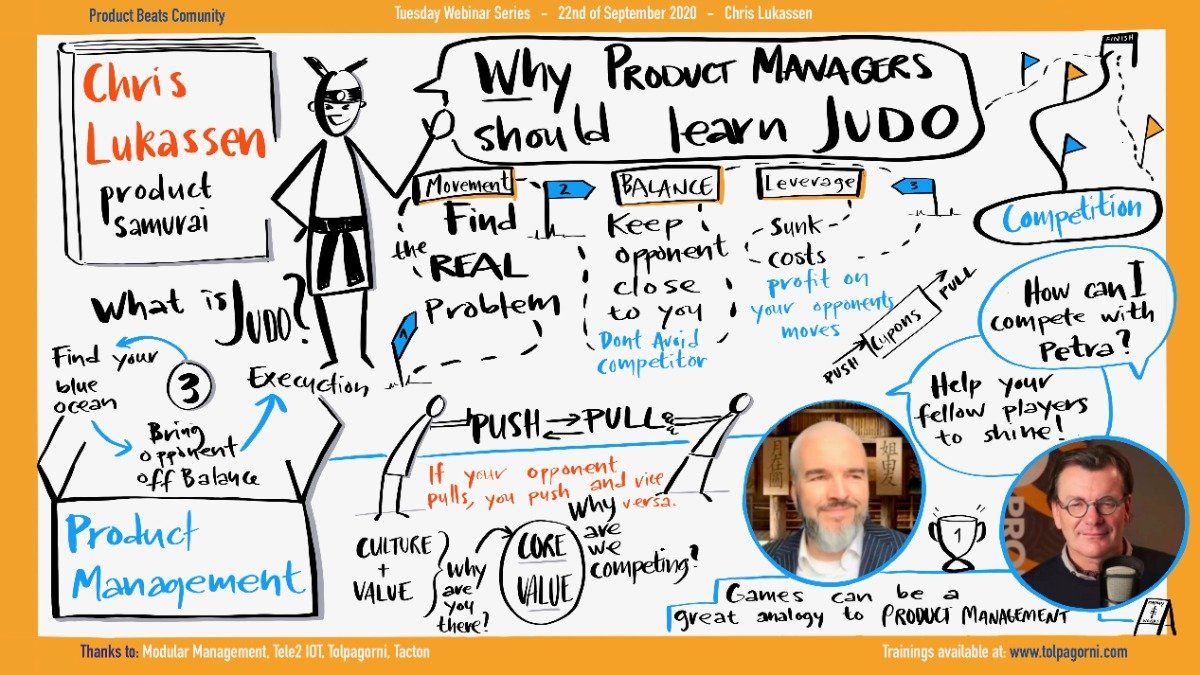 Product Beats Comunity
Tuesday Webinar Series - 22nd of September 2020 - Chris Lukassen
Chris
Lukassen
product
samurai
Why Product Managers
should learn JUDO
FINISH
Competition
Movement
Find
the REAL
Problem
1
2
BALANCE
Keep
opponent
close
to you
Dont Avoid
competitor
Leverage
3
Sunk
costs
profit on
your opponents
moves
PUSH
Cupons
PULL
How can I
compete with
Petra?
Help your
fellow players
to shine!
What is
JUDO?
Find your
blue
ocean
3
Execution
Bring
opponent
off Balance
Product
Management
PUSH PULL
If your opponent
pulls, you push and vice
versa.
CULTURE
+
VALUE
Why
are
you
there?
CORE
VALUE
Why
are
we
competing?
月在圖
PRO
1
Games can be a
great analogy to PRODUCT MANAGEMENT
Thanks to: Modular Management, Tele2 IOT, Tolpagorni, Tacton
Trainings available at: www.tolpagorni.com